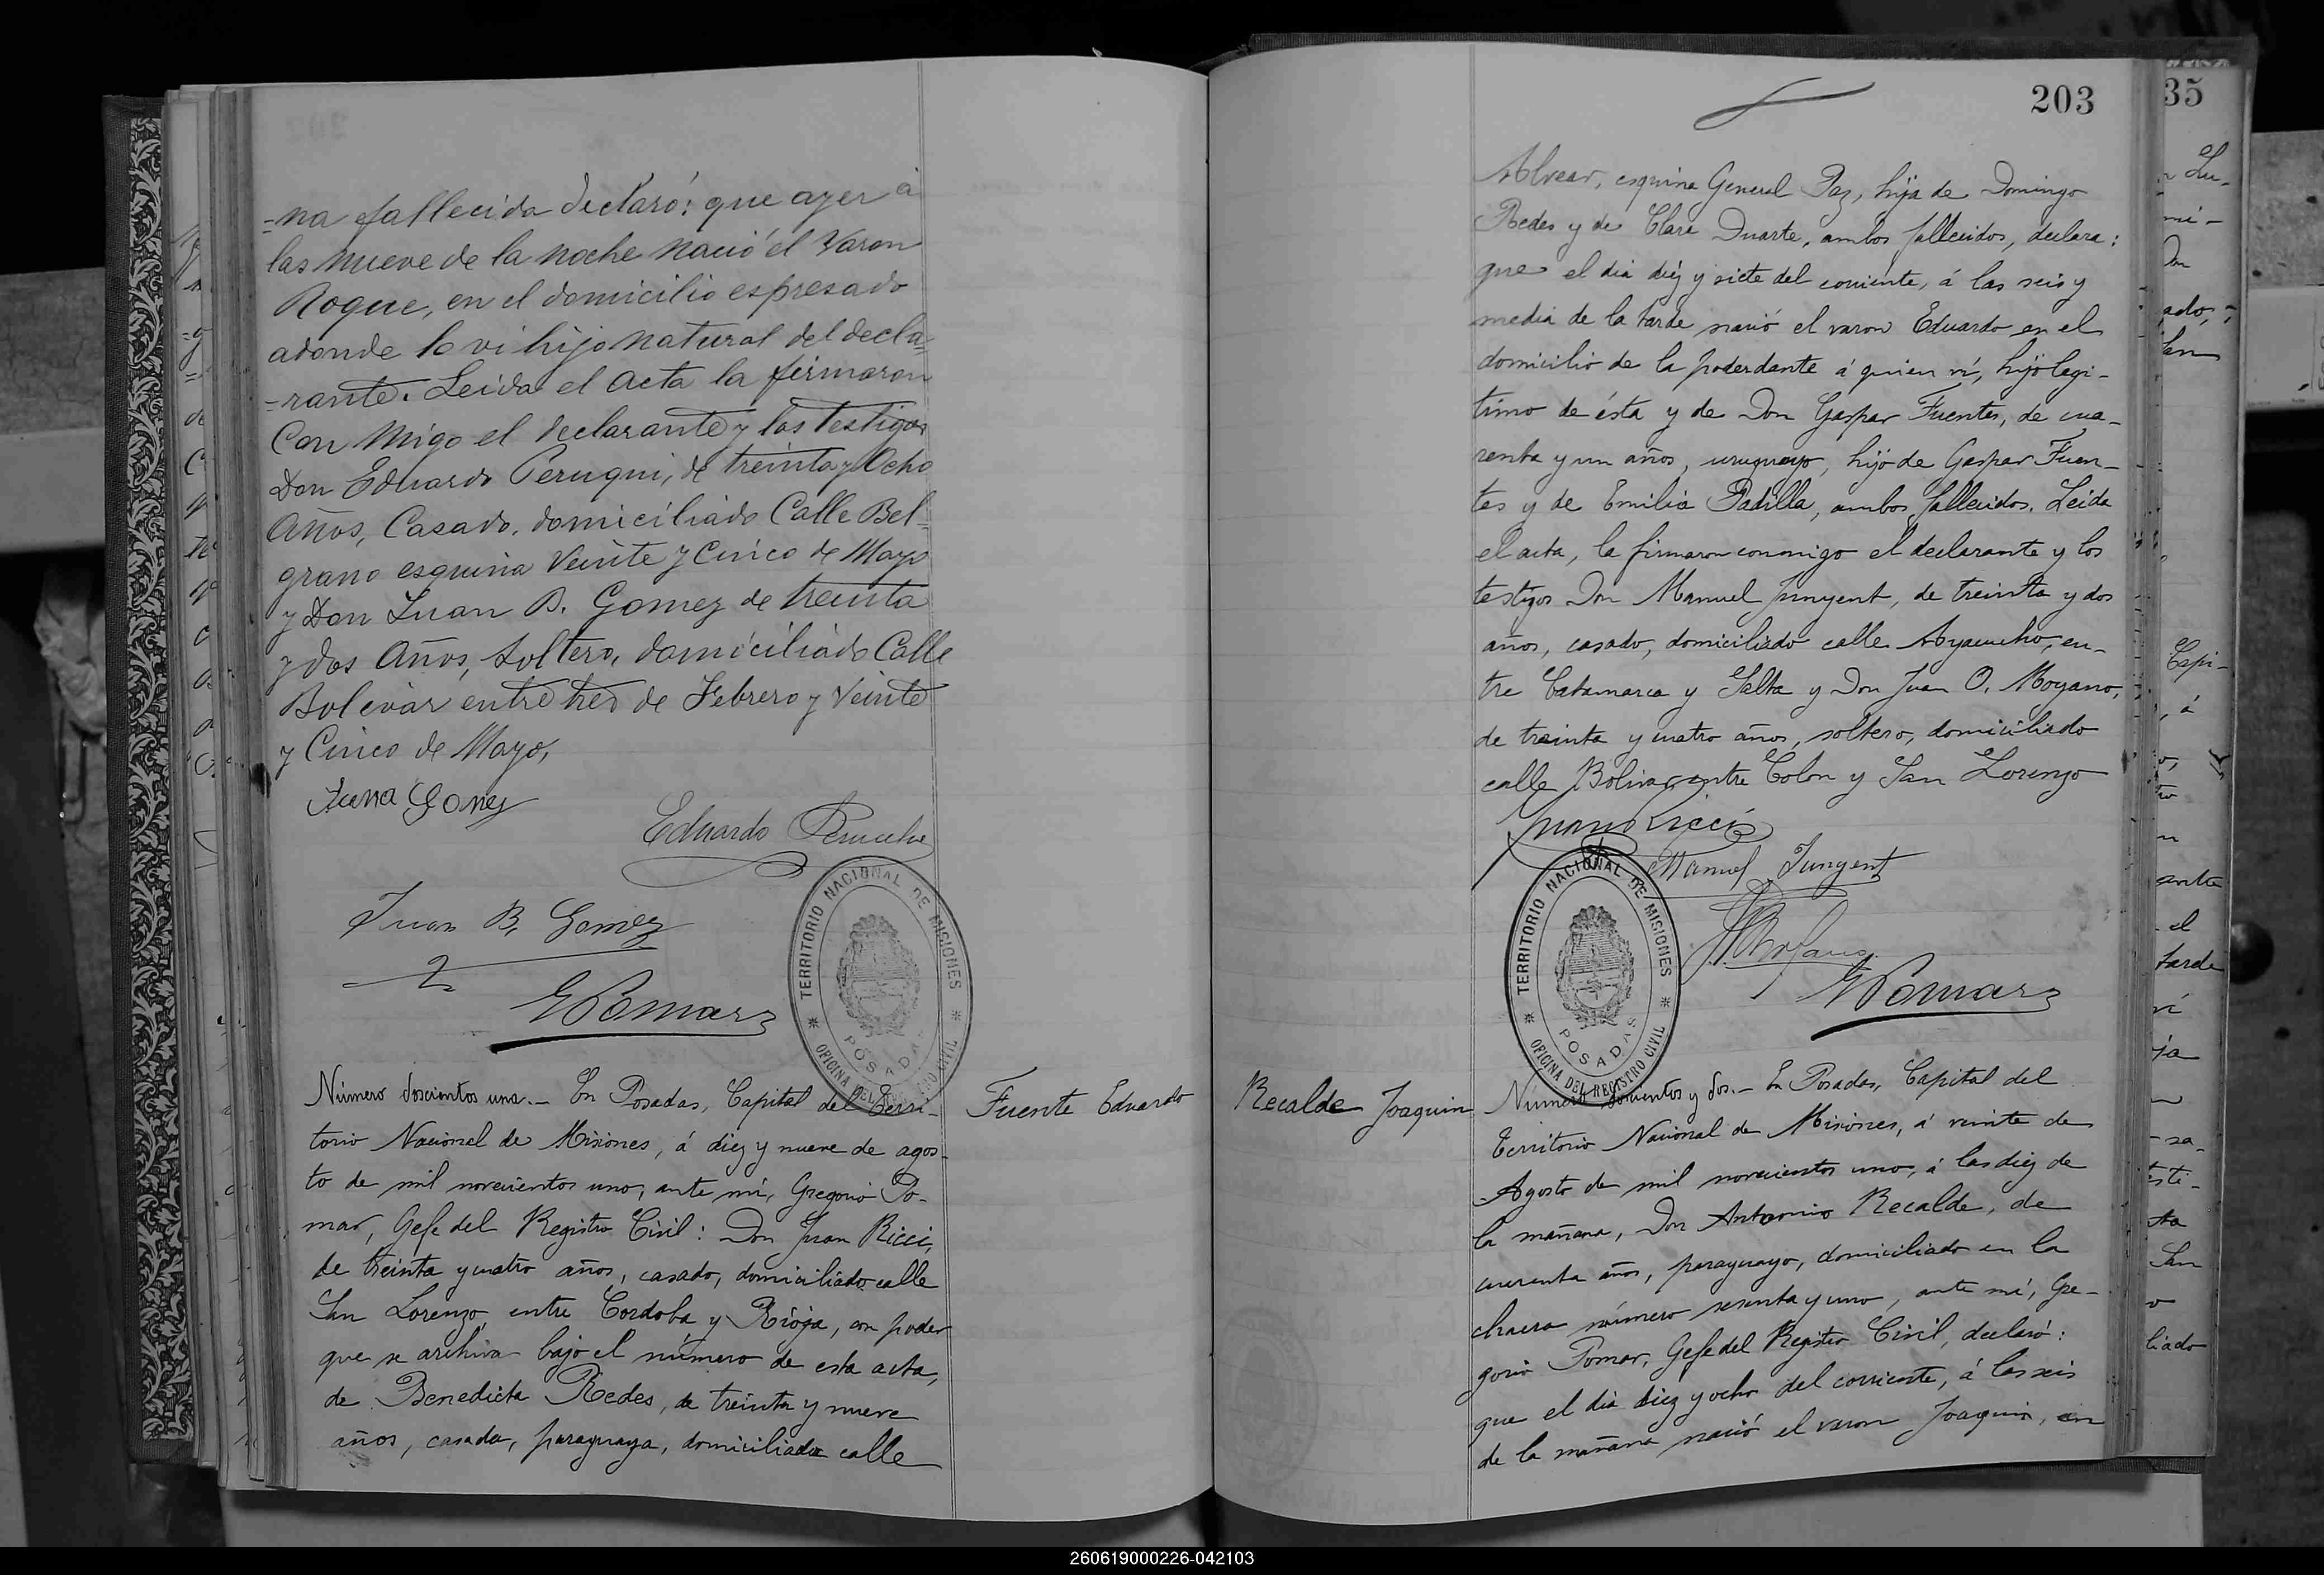 -na fallecida declaró: que ayer á
las nueve de la noche nació el Varon
Roque, en el domicilio espresado
adonde lo vi hijo natural del decla=
-rante. Leida el acta la firmaron
Con migo el declarante y los testigos
Don Eduardo Peruqui, de treinta y Ocho
Años, Casado, domiciliado Calle Bel-
grano esquina Veinte y Cinco de Mayo
y Don Juan B. Gomez de treinta
y dos Años, Soltero, domiciliado Calle
Bolivar entre tres de Febrero y Veinte
y Cinco de Mayo,
Juna Gomez
Eduardo Perucchi
Juan B. Gomez
GPomar
TERRITORIO NACIONAL DE MISIONES
POSADAS
OFICINA DEL REGISTRO CIVIL
Fuente Eduardo
Número doscientos uno.- En Posadas, Capital del Terri-
torio Nacional de Misiones, á diez y nueve de agos-
to de mil novecientos uno, ante mí, Gregorio Po-
mar, Gefe del Registro Civil: Don Juan Ricci,
de treinta y cuatro años, casado, domiciliado calle
San Lorenzo, entre Cordoba y Rioja, con poder
que se archiva bajo el número de esta acta,
de Benedicta Redes, de treinta y nueve
años, casada, paraguaya, domiciliada calle
203
Alvear, esquina General Paz, hija de Domingo
Redes y de Clara Duarte, ambos fallecidos, declara:
que el dia diez y siete del corriente, á las seis y
media de la tarde nació el varon Eduardo en el
domicilio de la poderdante á quien ví, hijo legi-
timo de ésta y de Don Gaspar Fuentes, de cua-
renta y un años, uruguayo, hijo de Gaspar Fuen-
tes y de Emilia Padilla, ambos fallecidos. Leida
el acta, la firmaron conmigo el declarante y los
testigos Don Manuel Junyent, de treinta y dos
años, casado, domiciliado calle Ayacucho, en-
tre Catamarca y Salta y Don Juan O. Moyano,
de treinta y cuatro años, soltero, domiciliado
calle Bolivar entre Colon y San Lorenzo
Juan Ricci
Manuel Junyent
GPomar
TERRITORIO NACIONAL DE MISIONES
POSADAS
OFICINA DEL REGISTRO CIVIL
Recalde Joaquin
Número doscientos y dos.- En Posadas, Capital del
Territorio Nacional de Misiones, á veinte de
Agosto de mil novecientos uno, á las diez de
la mañana, Don Antonio Recalde, de
cuarenta años, paraguayo, domiciliado en la
chacra número sesenta y uno, ante mí, Gre-
gorio Pomar, Gefe del Registro Civil, declaró:
que el dia diez y ocho del corriente, á las seis
de la mañana nació el varon Joaquin, en
35
260619000226-042103